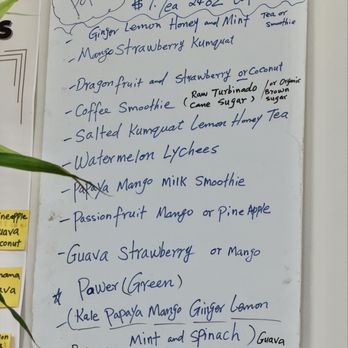 $ 1. /ea 24oz
Ginger Lemon Honey and Mint Tea or Smoothie
- Mango Strawberry Kumquat
- Dragonfruit and Strawberry or Coconut
- Coffee Smoothie (Raw Turbinado Cane Sugar) / or Organic Brown Sugar
- Salted Kumquat Lemon Honey Tea
- Watermelon Lychees
- Papaya Mango Milk Smoothie
- Passionfruit Mango or PineApple
- Guava Strawberry or Mango
* Power (Green)
- (Kale Papaya Mango Ginger Lemon
Mint and Spinach) Guava
ineapple
uava
conut
nana
ava